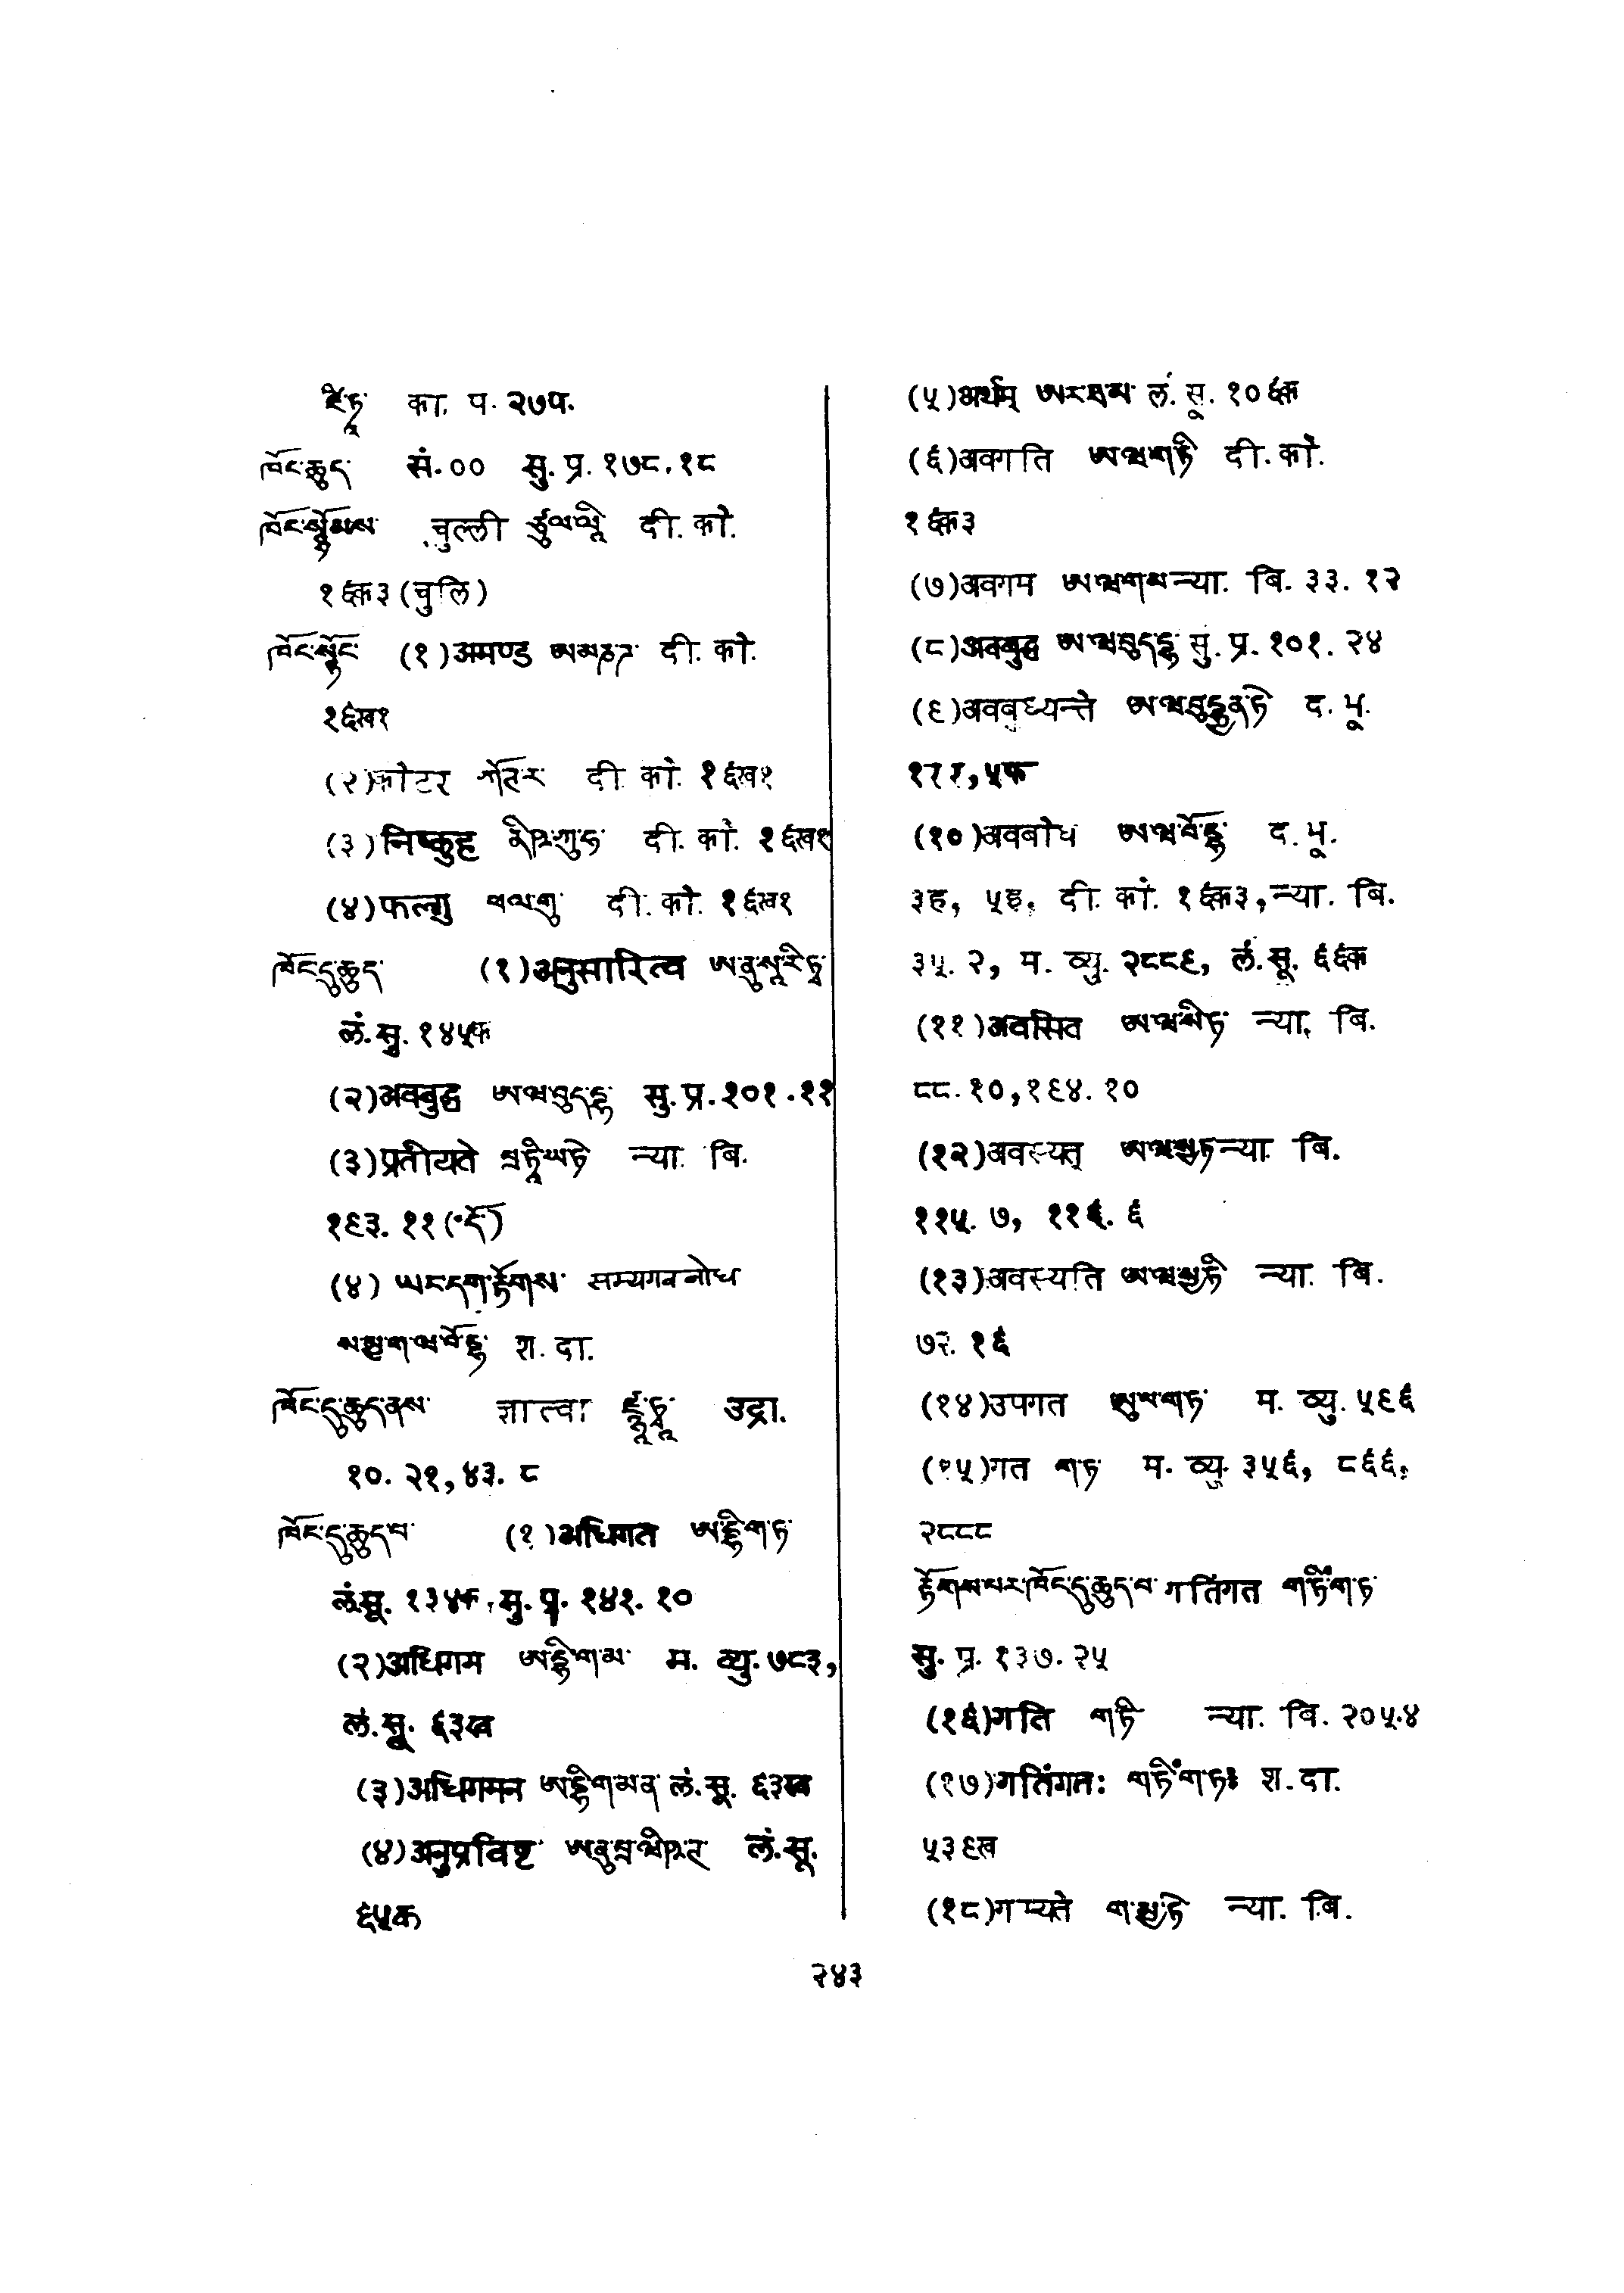 ཛཱི་ཏཱ་ का. प. २७प.
ཁོང་ཆུད་ सं.०० सु. प्र. १७८.१८
ཁོང་སྙོམས་ चुल्ली ཙུལ་ལཱི དी. को.
१६क३ (चुलि)
ཁོང་སྟོང་ (१) अमण्ड ཨ་མཎྜ་ दी. को.
१६ख१
(२) कोटर ཀོ་ཊ་ར दी को. १६ख१
(३) निष्कुह ནིཥྐུ་ཧ་ दी. को. १६ख१
(४) फल्गु ཕལ་གུ་ दी. को. १६ख१
ཁོང་དུ་ཆུད་ (१) अनुसारित्व ཨ་ནུ་སཱ་རི་ཏྭ་
लं.सु. १४५क
(२) अवबुद्ध ཨ་ཝ་བུད་དྷ་ सु. प्र. १०१.११
(३) प्रतीयते པྲ་ཏཱི་ཡ་ཏེ न्या. बि.
१९३. ११ (་དོ)
(४) ཡང་དག་རྟོགས་ सम्यगवबोध
སམྱ་ག་ཝ་བོ་དྷ་ श. दा.
ཁོང་དུ་ཆུད་ནས་ ज्ञात्वा ཛྙཱ་ཏྭཱ་ उद्रा.
१०. २१, ४३. ८
ཁོང་དུ་ཆུད་པ་ (१) अधिगत ཨ་དྷི་ག་ཏ་
लं.सू. १३४क, सु. प्र. १४१. १०
(२) अधिगम ཨ་དྷི་ག་མ་ म. व्यु. ७८३,
लं.सू. ६३ख
(३) अधिगमन ཨ་དྷི་ག་མ་ན་ लं.सू. ६३ख
(४) अनुप्रविष्ट ཨ་ནུ་པྲ་ཝིཥྚ लं.सू.
६५क
(५) अर्थम् ཨར་ཐམ་ लं. सू. १०६क
(६) अवगति ཨ་ཝ་ག་ཏི दी. को.
१६क३
(७) अवगम ཨ་ཝ་ག་མ न्या. बि. ३३. १२
(८) अवबुद्ध ཨ་ཝ་བུད་དྷ་ सु. प्र. १०१. २४
(९) अवबुध्यन्ते ཨ་ཝ་བུ་དྷྱན་ཏེ द. भू.
(१०) अवबोध ཨ་ཝ་བོ་དྷ་ द. भू.
३ह, ५इ. दी. को. १६क३, न्या. बि.
३५. २, म. व्यु. २८८९, लं.सू. ६६क
(११) अवसित ཨ་ཝ་སི་ཏ་ न्या. बि.
८८. १०, १९४. १०
(१२) अवस्यत् ཨ་ཝ་སྱ་ཏ न्या. बि.
११५. ७, ११६. ६
(१३) अवस्यति ཨ་ཝ་སྱ་ཏི न्या. बि.
७२. १६
(१४) उपगत ཨུ་པ་ག་ཏ་ म. व्यु. ५९६
(१५) गत ག་ཏ་ म. व्यु. ३५६, ८६६,
२८८८
རྟོགས་པར་ཁོང་དུ་ཆུད་པ་ गतिंगत ག་ཏིཾ་ག་ཏ་
सु. प्र. १३७. २५
(१६) गति ག་ཏི न्या. बि. २०५.४
(१७) गतिंगतः ག་ཏིཾ་ག་ཏཿ श. दा.
५३९ख
(१८) गम्यते ག་མྱ་ཏེ न्या. बि.
२४३